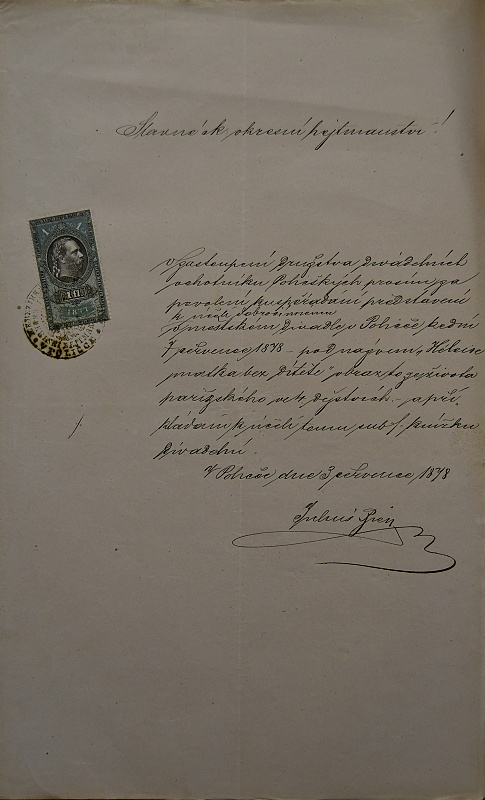 Slavné ck. okresní hejtmanství!
V zastoupení Družstva divadelních
ochotníků Poličských prosím za
povolení ku spořádání představení
k účeli dobročinnému
v městském Divadle v Poličce ke dni
7 července 1878 – pod názvem "Heloise
matka bez dítěte" obraz ze života
pařížského ve 4 dějstvích – a při-
kládám k účeli tomu sub /. knížku
divadelní.
/.
V Poličce dne 3 července 1878
Julius